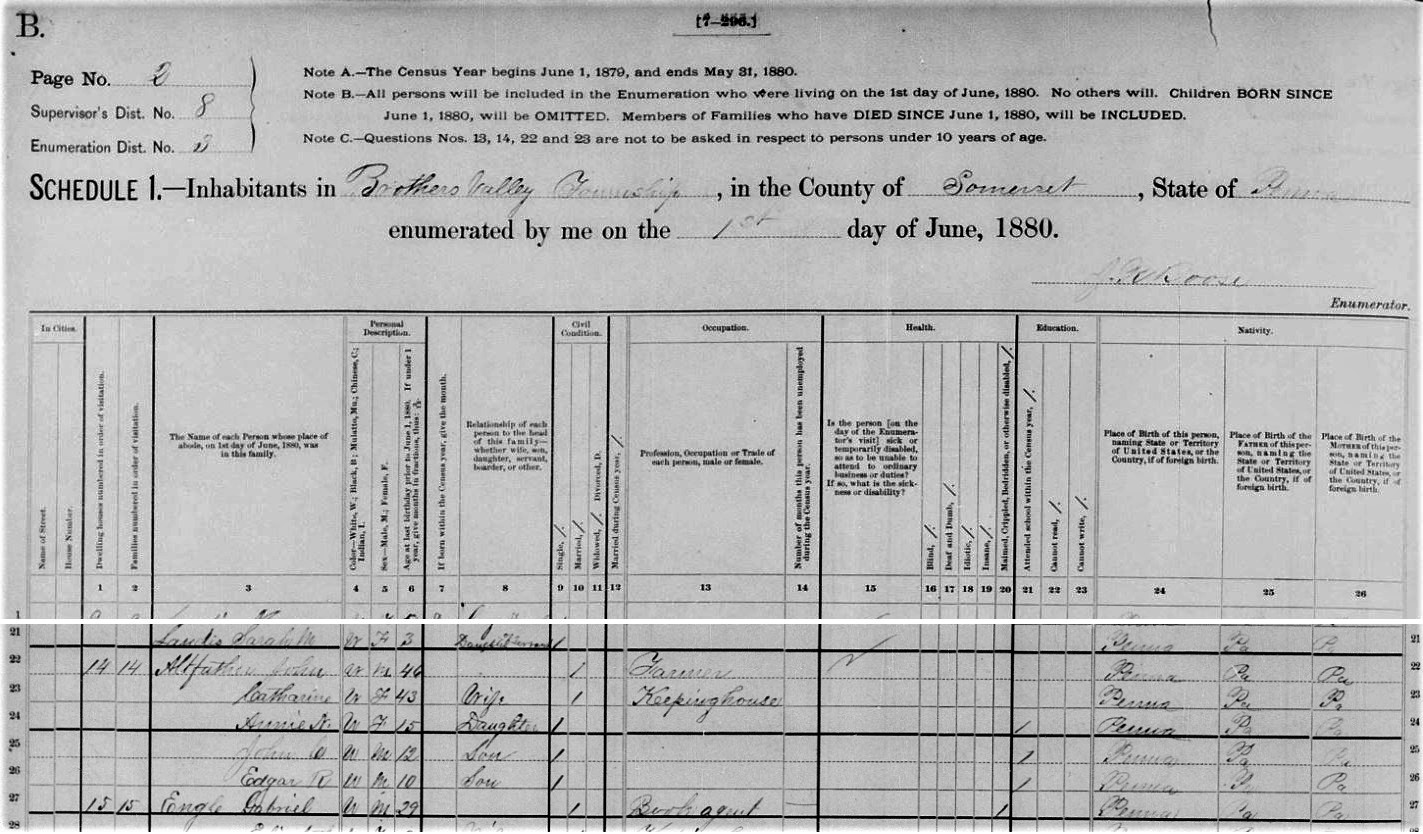 B.
[7-296.]
Page No. 2
Supervisor's Dist. No. 8
Enumeration Dist. No. 2
Note A.—The Census Year begins June 1, 1879, and ends May 31, 1880.
Note B.—All persons will be included in the Enumeration who were living on the 1st day of June, 1880. No others will. Children BORN SINCE
June 1, 1880, will be OMITTED. Members of Families who have DIED SINCE June 1, 1880, will be INCLUDED.
Note C.—Questions Nos. 13, 14, 22 and 23 are not to be asked in respect to persons under 10 years of age.
SCHEDULE 1.—Inhabitants in Brothers Valley Township, in the County of Somerset, State of Penna
enumerated by me on the 1st day of June, 1880.
Enumerator.
In Cities.
Name of Street.
House Number.
Dwelling houses numbered in order of visitation.
Families numbered in order of visitation.
The Name of each Person whose place of
abode, on 1st day of June, 1880, was
in this family.
Personal
Description.
Color—White, W.; Black, B.; Mulatto, Mu.; Chinese, C.;
Indian, I.
Sex—Male, M.; Female, F.
Age at last birthday prior to June 1, 1880. If under 1
year, give months in fraction, thus: 3/12
If born within the Census year, give the month.
Relationship of each
person to the head
of this family—
whether wife, son,
daughter, servant,
boarder, or other.
Civil
Condition.
Single, /.
Married, /.
Widowed, /. Divorced, D.
Married during Census year, /.
Occupation.
Profession, Occupation or Trade of
each person, male or female.
Number of months this person has been unemployed
during the Census year.
Health.
Is the person [on the
day of the Enumera-
tor's visit] sick or
temporarily disabled,
so as to be unable to
attend to ordinary
business or duties?
If so, what is the sick-
ness or disability?
Blind, /.
Deaf and Dumb, /.
Idiotic, /.
Insane, /.
Maimed, Crippled, Bedridden, or otherwise disabled, /.
Education.
Attended school within the Census year, /.
Cannot read, /.
Cannot write, /.
Nativity.
Place of Birth of this person,
naming State or Territory
of United States, or the
Country, if of foreign birth.
Place of Birth of the
FATHER of this per-
son, naming the
State or Territory
of United States, or
the Country, if of
foreign birth.
Place of Birth of the
MOTHER of this per-
son, naming the
State or Territory
of United States, or
the Country, if of
foreign birth.
1 2 3 4 5 6 7 8 9 10 11 12 13 14 15 16 17 18 19 20 21 22 23 24 25 26
1
21 Landis Sarah M W F 3 / Penna Pa Pa 21
22 14 14 Altfather John W M 46 / Farmer Penna Pa Pa 22
23 Catharine W F 43 Wife / Keepinghouse Penna Pa Pa 23
24 Annie N. W F 15 Daughter / / Penna Pa Pa 24
25 John C W M 12 Son / / Penna Pa Pa 25
26 Edgar R W M 10 Son / / Penna Pa Pa 26
27 15 15 Engle Gabriel W M 29 / Book agent / Penna Pa Pa 27
28 28